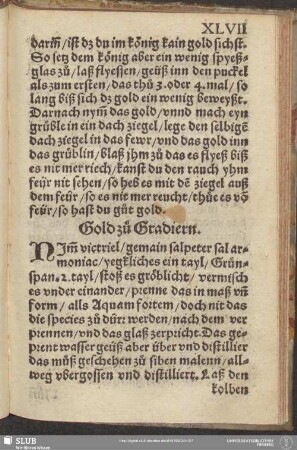 XLVII
darin̄/ist dz du im könig kain gold sichst.
So setz dem könig aber ein wenig spyeß-
glas zů/laß flyessen/geüß inn den puckel
als zum ersten/das thů 3.oder 4.mal/so
lang biß sich dz gold ein wenig beweyßt.
Darnach nym̄ das gold/vnnd mach eyn
grüble in ein dach ziegel/lege den selbigē
dach ziegel in das fewr/vnd das gold inn
das grüblin/blaß jhm zů das es flyeß biß
es nit mer riech/kanst du den rauch yhm
feür nit sehen/so heb es mit dē ziegel auß
dem feür/so es nit mer reucht/thůe es võ
feür/so hast du gůt gold.
Gold zů Gradiern.
NIm̄ victriel/gemain salpeter sal ar-
moniac/yegkliches ein tayl/Grün-
span.2.tayl/stoß es gröblicht/vermisch
es vnder einander/prenne das in maß vn̄
form/alls Aquam fortem/doch nit das
die species zů dürr werden/nach dem ver
prennen/vnd das glaß zerpricht. Das ge-
prent wasser geüß aber über vnd distillier
das můß geschehen zů siben malenn/all-
weg vbergossen vnd distilliert. Laß den
kolben
SLUB
Wir führen Wissen.